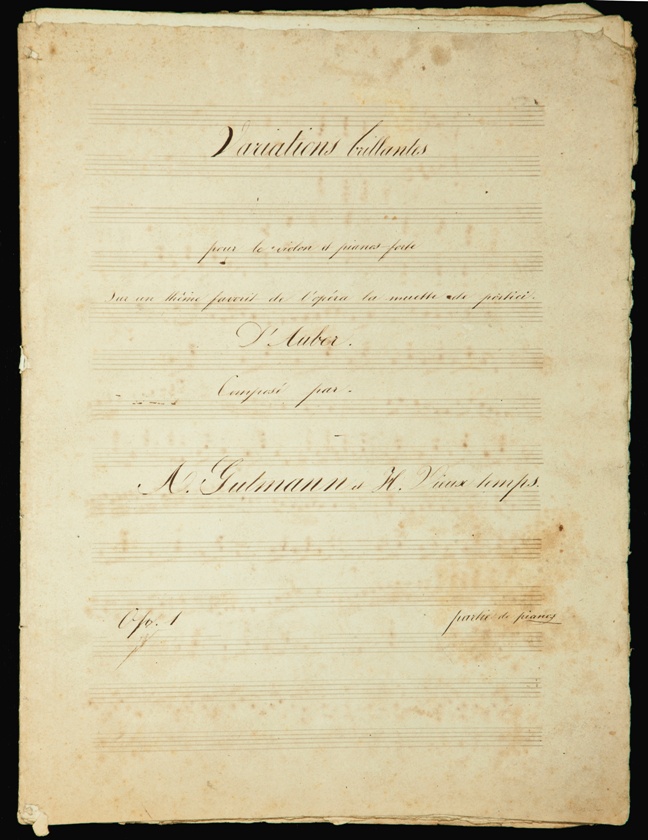 Variations brillantes
pour le violon et pianos forte
Sur un thème favorit de l'opéra la muette de pôrtici.
D'Auber.
Composé par.
A. Gutmann et H. Vieux temps.
Op. 1
partie de pianos